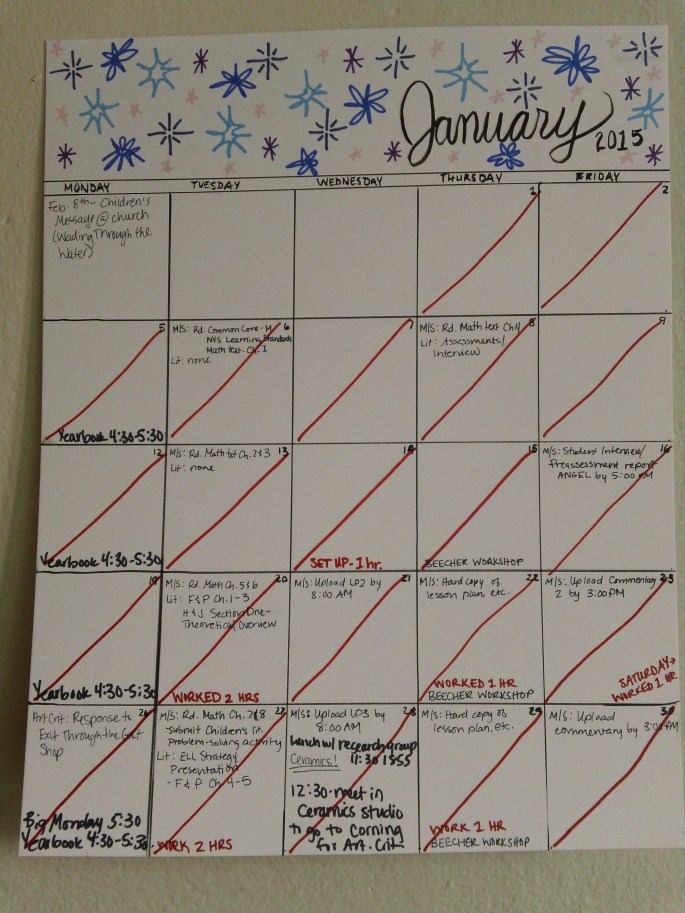 January 2015
MONDAY TUESDAY WEDNESDAY THURSDAY FRIDAY
Feb. 8th - Children's
Message @ church
(Wading Through the
Water)
1
2
5
Yearbook 4:30-5:30
6
M/S: Rd. Common Core - M
NYS Learning Standards
Math text. Ch. 1
Lit: none
7
8
M/S: Rd. Math text Ch. 4
Lit: Assessments/
Interview
9
12
Yearbook 4:30-5:30
13
M/S: Rd. Math txt Ch. 2 & 3
Lit: none
14
SET UP - 1 hr.
15
BEECHER WORKSHOP
16
M/S: Student Interview/
Preassessment report
ANGEL by 5:00 PM
19
Yearbook 4:30-5:30
20
M/S: Rd. Math Ch. 5 & 6
Lit: F & P Ch. 1-3
H & J Section One-
Theoretical Overview
WORKED 2 HRS
21
M/S: Upload LP2 by
8:00 AM
22
M/S: Hard copy of
lesson plan, etc.
WORKED 1 HR
BEECHER WORKSHOP
23
M/S: Upload Commentary
2 by 3:00 PM
SATURDAY→
WORKED 1 HR
26
Art Crit: Response to
Exit Through the Gift
Shop
Big Monday 5:30
Yearbook 4:30-5:30
M/S: Rd. Math Ch. 7 & 8
Submit Children's lit.
Problem-solving activity
Lit: ELL Strategy
Presentation
- F & P Ch. 4-5
WORK 2 HRS
28
M/S: Upload LP3 by
8:00 AM
Lunch w/ research group
Ceramics! 11:30 1S55
12:30 - meet in
Ceramics studio
to go to Corning
for Art. Crit
29
M/S: Hard copy of
lesson plan, etc.
WORK 1 HR
BEECHER WORKSHOP
30
M/S: Upload
commentary by 3:00 PM